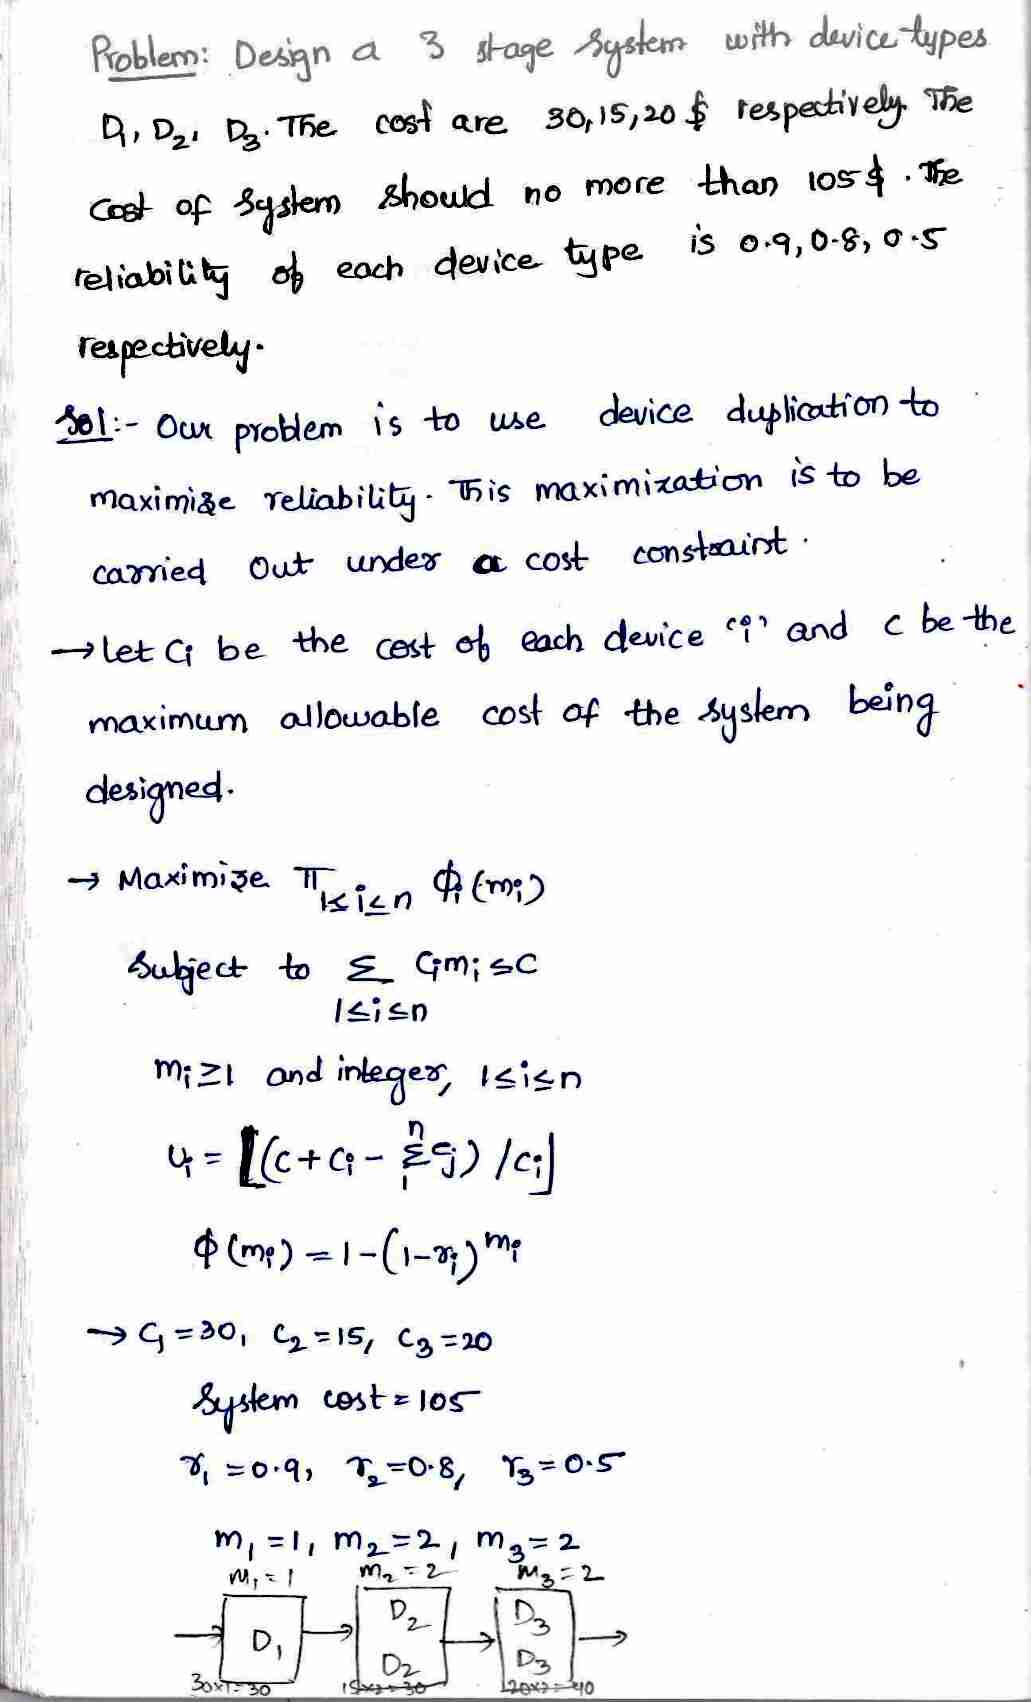 Problem: Design a 3 stage system with device types
D1, D2, D3. The cost are 30,15,20 $ respectively. The
cost of system should no more than 105 $. The
reliability of each device type is 0.9, 0.8, 0.5
respectively.
Sol:- Our problem is to use device duplication to
maximize reliability. This maximization is to be
carried out under a cost constraint.
→ let Ci be the cost of each device "i" and C be the
maximum allowable cost of the system being
designed.
→ Maximize π 1≤i≤n ϕi(mi)
Subject to Σ Cimi ≤ C
1≤i≤n
mi≥1 and integer, 1≤i≤n
ui = ⌊(C + Ci - Σ1^n Cj) / Ci⌋
ϕ(mi) = 1-(1-ri)^mi
→ C1 = 30, C2 = 15, C3 = 20
System cost = 105
r1 = 0.9, r2 = 0.8, r3 = 0.5
m1 = 1, m2 = 2, m3 = 2
m1 = 1 m2 = 2 m3 = 2
D2 D3
D1
D2 D3
30x1=30 15x2=30 20x2=40